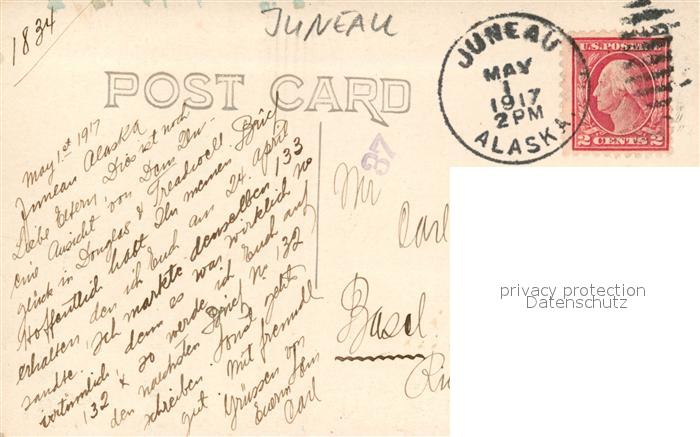 1834
JUNEAU
POST CARD
JUNEAU
MAY
1
1917
2 PM
ALASKA.
U.S. POSTAGE
2 CENTS 2
37
May 1st 1917
Juneau Alaska
Liebe Eltern, Dies ist noch
eine Ansicht von Dem Un-
glück in Douglas & Treadwell
Hoffentlich habt Ihr meinen Brief
erhalten den ich Euch am 24. April
sandte. Ich markte denselben 133
irrtümlich, denn es war wirklich No
132 & so werde ich Euch auf
den nächsten Brief No 132
schreiben. Sonst gehts
gut. Mit freundl
Grüssen von
Euerm Sohn
Carl
Mr
Carl
Basel
privacy protection
Datenschutz